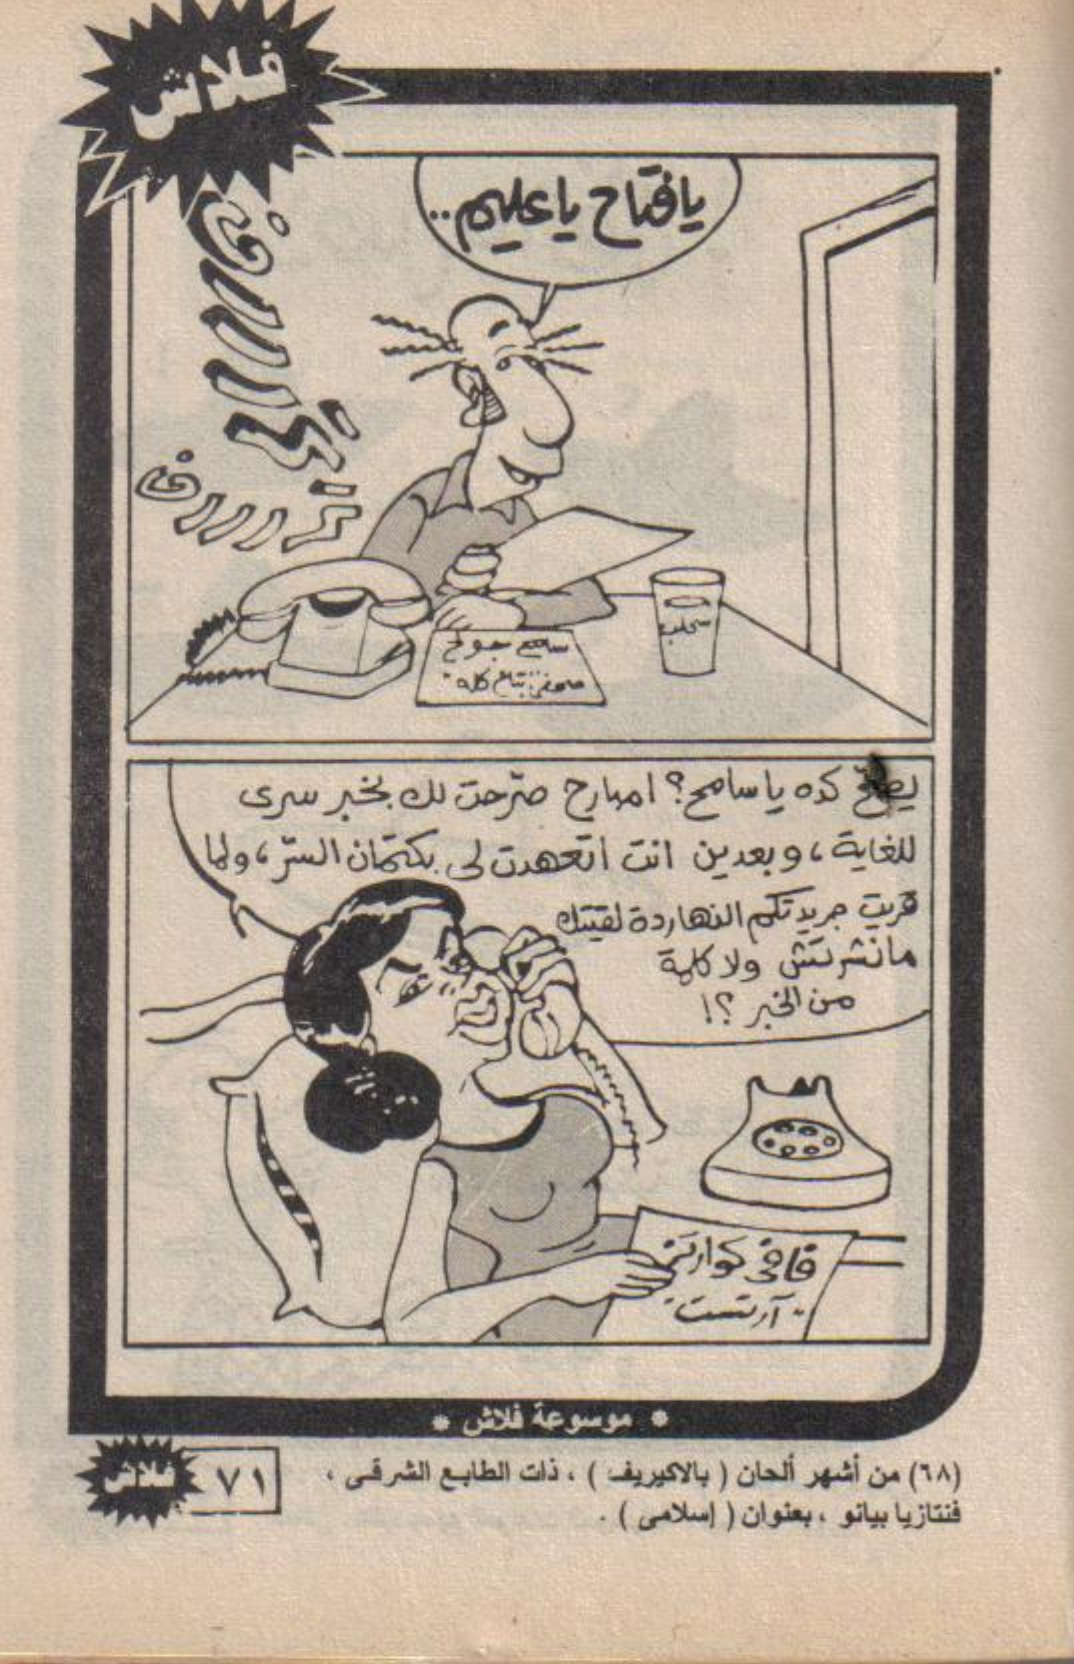 فلاش
يا فتاح يا عليم..
تررررررن
تررررن
سحلب
سامح جولخ
صحفى بتاع كله
يصح كده يا سامح؟ امبارح صرّحت لك بخبر سرى
للغاية، وبعدين انت اتعهدت لى بكتمان السرّ، ولما
قريت جريدتكم النهاردة لقيتك
مانشرتش ولا كلمة
من الخبر ؟!
فافى كوارتى
- آرتست -
* موسوعة فلاش *
(٦٨) من أشهر ألحان ( بالاكيريف ) ، ذات الطابع الشرقى ،
فنتازيا بيانو ، بعنوان ( إسلامى ) .
٧١
فلاش